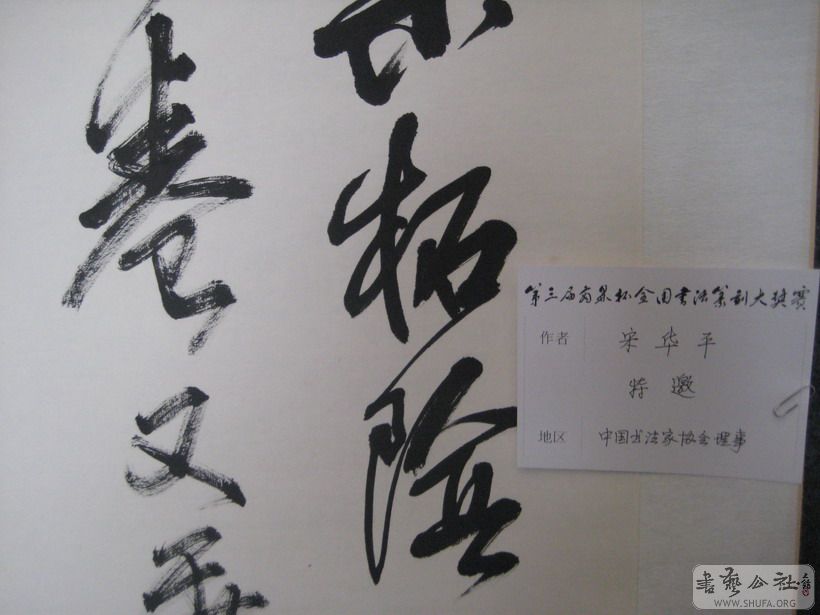 柘陰
卷又
第三届商鼎杯全国书法篆刻大奖赛
作者 宋华平
特邀
地区 中国书法家协会理事
書藝公社
WWW.SHUFA.ORG